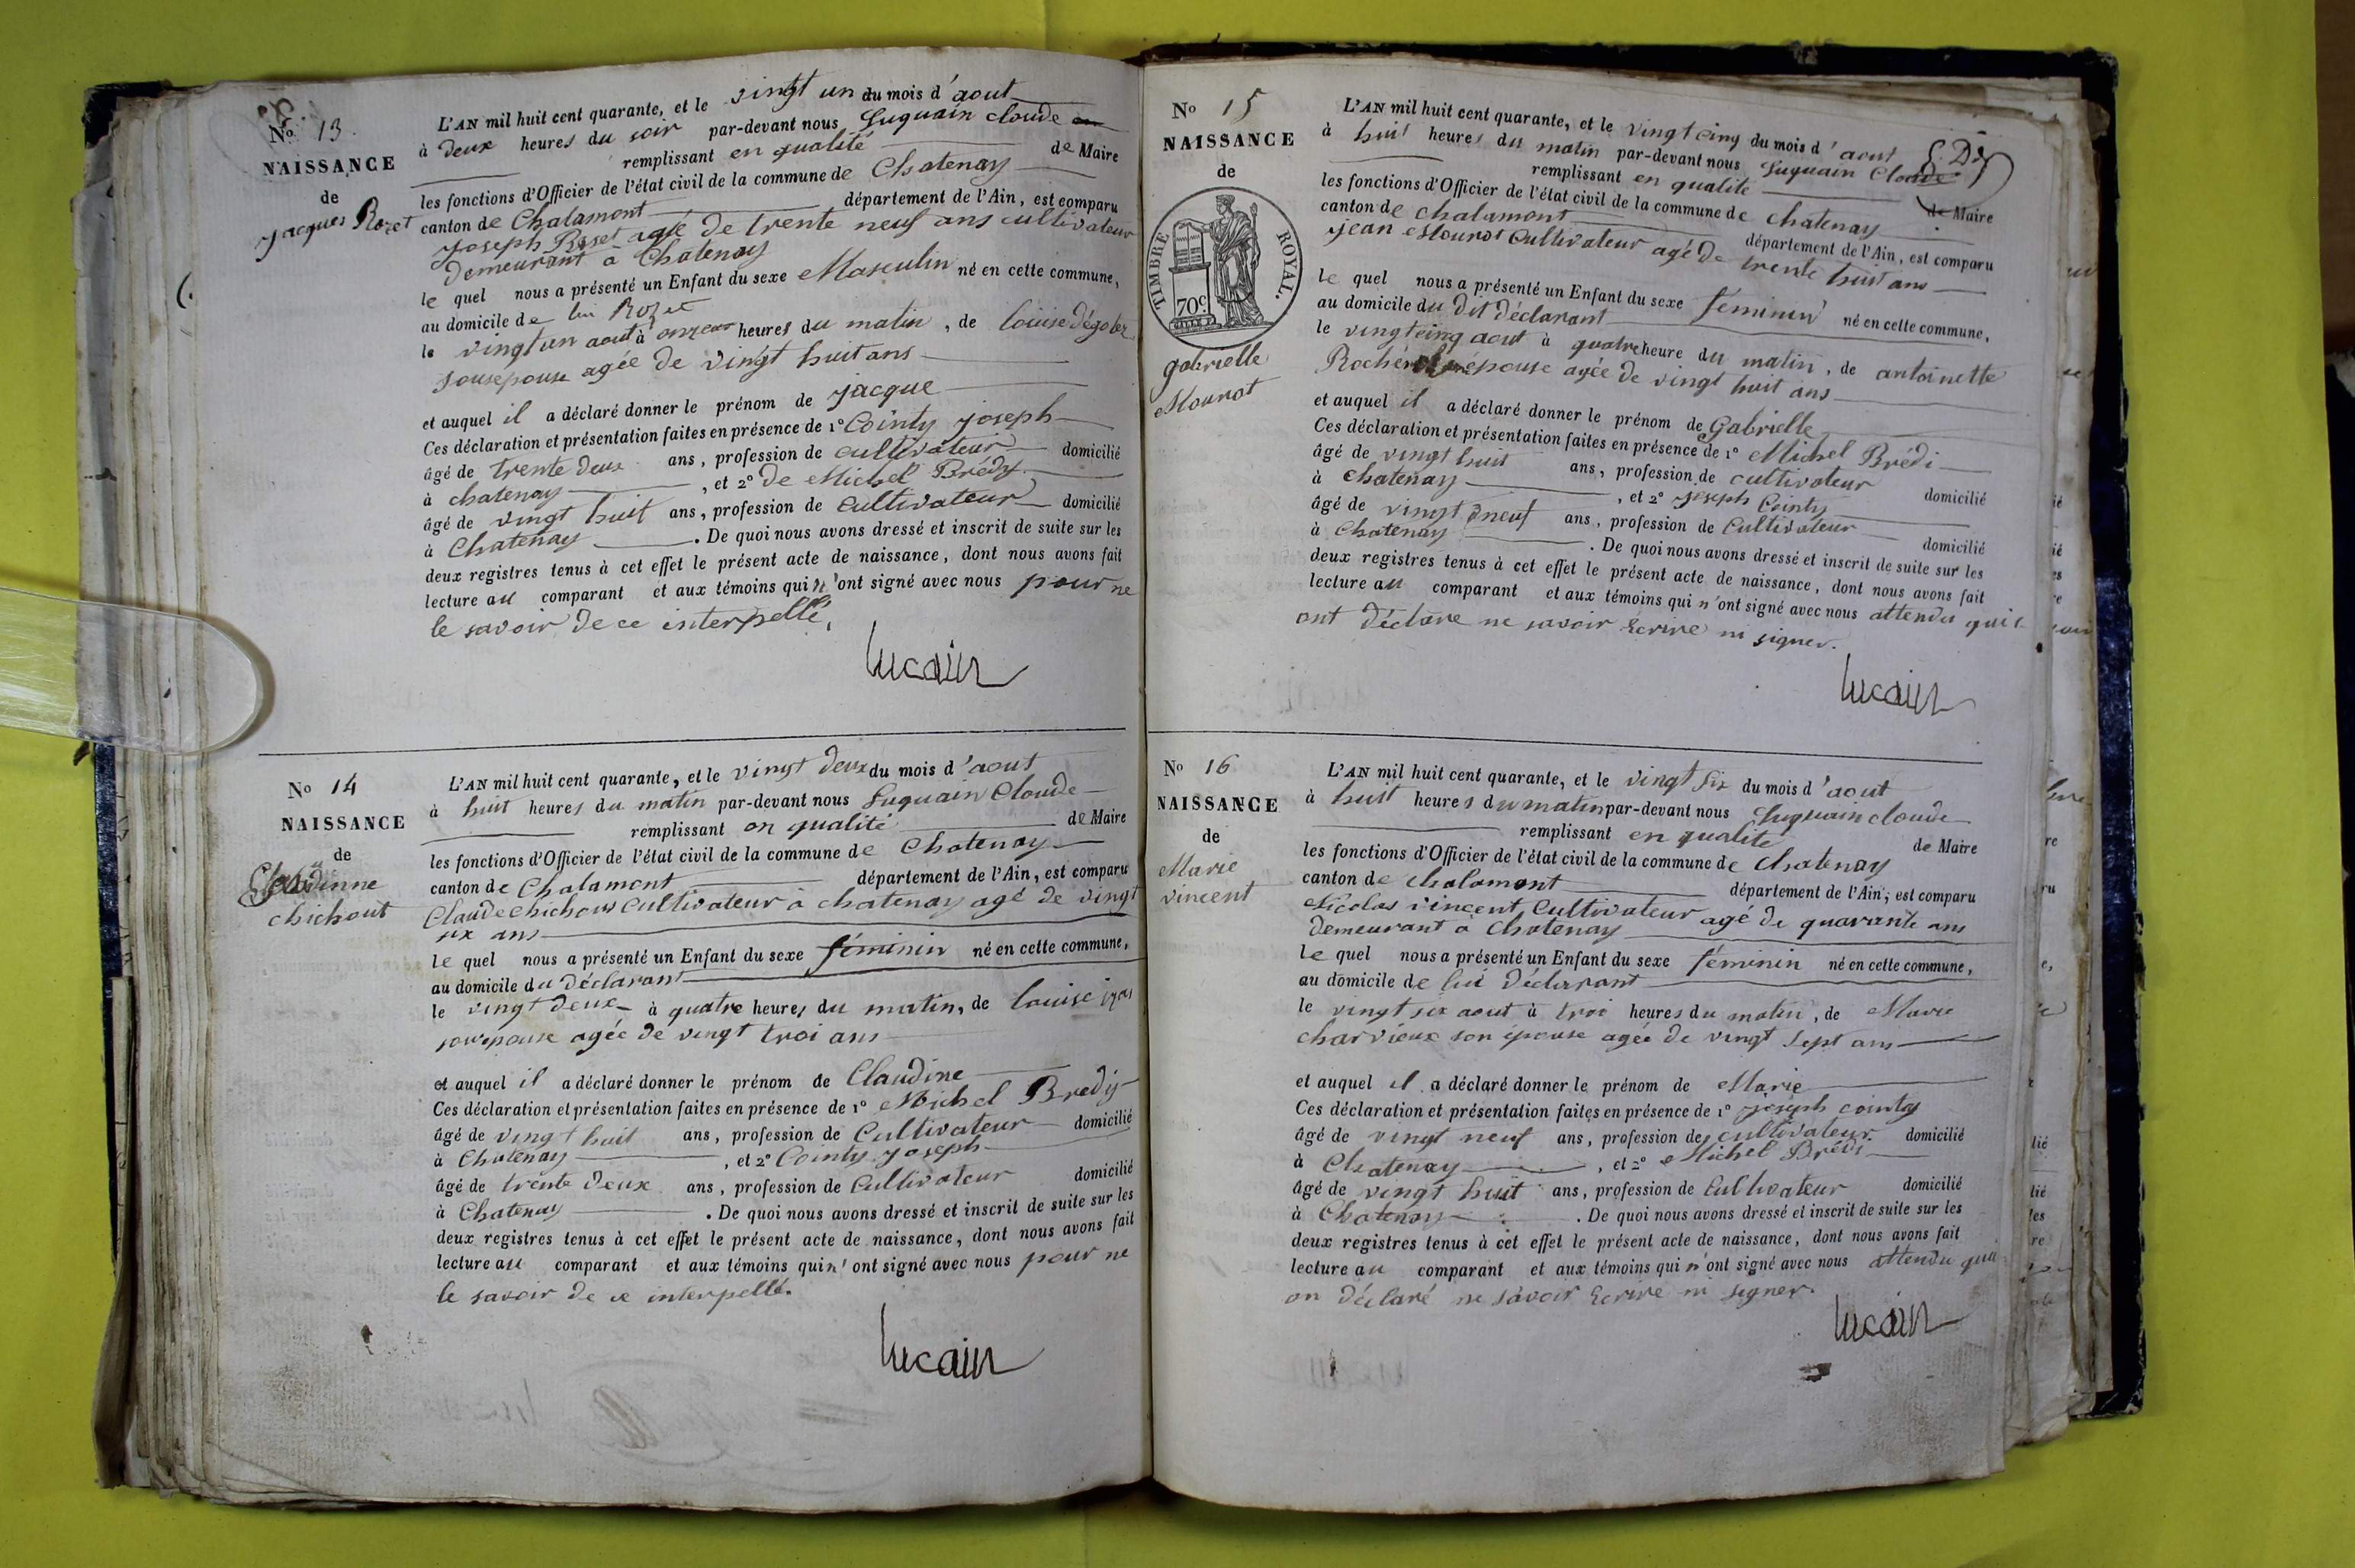 No 13.
NAISSANCE
de
Jacques Rozet
L'AN mil huit cent quarante, et le vingt un du mois d'aout
à deux heures du soir par-devant nous Luquain Claude
remplissant en qualité de Maire
les fonctions d'Officier de l'état civil de la commune de Chatenay
canton de Chalamont département de l'Ain, est comparu
Joseph Roset agé de trente neuf ans cultivateur
demeurant a Chatenay
le quel nous a présenté un Enfant du sexe Masculin né en cette commune,
au domicile de Rozet
le vingt un aout à onze heures du matin, de louise
agée de vingt huit ans
et auquel il a déclaré donner le prénom de jacque
Ces déclaration et présentation faites en présence de 1° Cointy joseph
âgé de trente deux ans, profession de cultivateur domicilié
à chatenay, et 2° de Michel Brédy
âgé de vingt huit ans, profession de Cultivateur domicilié
à Chatenay. De quoi nous avons dressé et inscrit de suite sur les
deux registres tenus à cet effet le présent acte de naissance, dont nous avons fait
lecture au comparant et aux témoins qui n'ont signé avec nous pour ne
le savoir de ce interpellé,
lucain
No 14
NAISSANCE
de
chichout
L'AN mil huit cent quarante, et le vingt deux du mois d'aout
à huit heures du matin par-devant nous Luquain Claude
remplissant en qualité de Maire
les fonctions d'Officier de l'état civil de la commune de Chatenay
canton de Chalamont département de l'Ain, est comparu
Claude Chichoux Cultivateur à chatenay agé de vingt
six ans
le quel nous a présenté un Enfant du sexe féminin né en cette commune,
au domicile du déclarant
le vingt deux à quatre heures du matin, de louise
son epouse agée de vingt troi ans
et auquel il a déclaré donner le prénom de Claudine
Ces déclaration et présentation faites en présence de 1° Michel Bredy
âgé de vingt huit ans, profession de Cultivateur domicilié
à Chatenay, et 2° Cointy joseph
âgé de trente deux ans, profession de Cultivateur domicilié
à Chatenay. De quoi nous avons dressé et inscrit de suite sur les
deux registres tenus à cet effet le présent acte de naissance, dont nous avons fait
lecture au comparant et aux témoins qui n'ont signé avec nous pour ne
le savoir de ce interpellé.
lucain
No 15
NAISSANCE
de
TIMBRE ROYAL.
70c.
gabrielle
Mounot
L'AN mil huit cent quarante, et le vingt cinq du mois d'aout
à huit heures du matin par-devant nous Luquain Claude
remplissant en qualité de Maire
les fonctions d'Officier de l'état civil de la commune de chatenay
canton de chalamont département de l'Ain, est comparu
jean Mounot Cultivateur agé de trente huit ans
le quel nous a présenté un Enfant du sexe féminin né en cette commune,
au domicile du dit déclarant
le vingt cinq aout à quatre heure du matin, de antoinette
épouse agée de vingt huit ans
et auquel il a déclaré donner le prénom de Gabrielle
Ces déclaration et présentation faites en présence de 1° Michel Brédi
âgé de vingt huit ans, profession de cultivateur domicilié
à Chatenay, et 2° Joseph Cointy
âgé de vingt neuf ans, profession de Cultivateur domicilié
à Chatenay. De quoi nous avons dressé et inscrit de suite sur les
deux registres tenus à cet effet le présent acte de naissance, dont nous avons fait
lecture au comparant et aux témoins qui n'ont signé avec nous attendu
ont déclare ne savoir écrire ni signer.
lucain
No 16
NAISSANCE
de
Marie
vincent
L'AN mil huit cent quarante, et le vingt six du mois d'aout
à huit heures du matin par-devant nous Luquain claude
remplissant en qualité de Maire
les fonctions d'Officier de l'état civil de la commune de Chatenay
canton de chalamont département de l'Ain, est comparu
Nicolas vincent Cultivateur agé de quarante ans
demeurant à Chatenay
le quel nous a présenté un Enfant du sexe féminin né en cette commune,
au domicile de lui déclarant
le vingt six aout à troi heures du matin, de Marie
charvieux son épouse agée de vingt sept ans
et auquel il a déclaré donner le prénom de Marie
Ces déclaration et présentation faites en présence de 1° joseph cointy
âgé de vingt neuf ans, profession de cultivateur domicilié
à Chatenay, et 2° Michel Brédi
âgé de vingt huit ans, profession de Cultivateur domicilié
à Chatenay. De quoi nous avons dressé et inscrit de suite sur les
deux registres tenus à cet effet le présent acte de naissance, dont nous avons fait
lecture au comparant et aux témoins qui n'ont signé avec nous attendu
on déclaré ne savoir écrire ni signer.
lucain